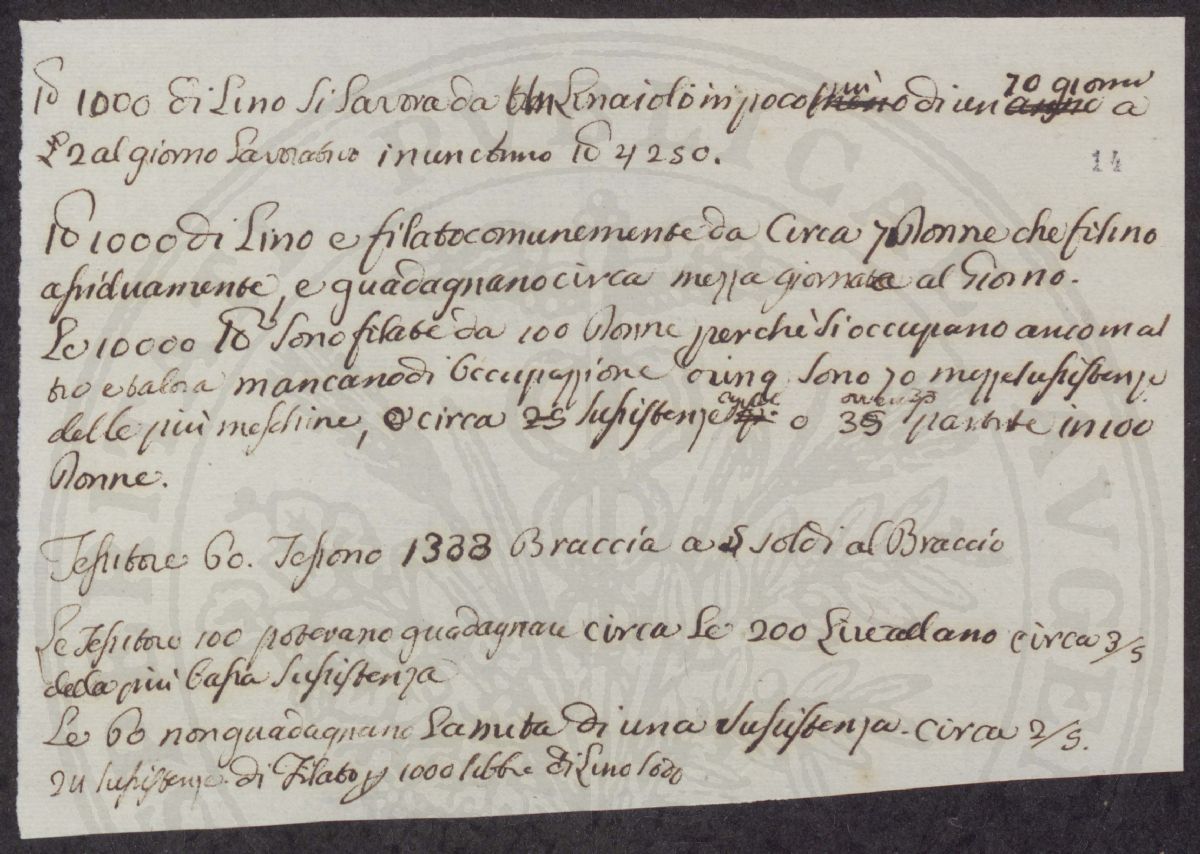 lb 1000 di Lino si Lavora da un Linaiolo in poco più di un 70 giorni a
£ 2 al giorno Lavorativo in un lb 4250.
14
lb 1000 di Lino e filato comunemente da Circa 7 Donne che filino
assiduamente, e guadagnano circa mezza giornata al Giorno.
Le 10000 lb sono filate da 100 Donne perchè si occupano anco in al
tro e talora mancano di Occupazione sono 70 mezze susistenze
delle più meschine, o circa 25 susistenze o 35 in 100
Donne.
Tessitore 60. Tessono 1333 Braccia a 5 soldi al Braccio
Le Tessitore 100 potevano guadagnare circa Le 200 Lire allano circa 3/5
della più bassa susistenza
Le 60 non guadagnano La metà di una susistenza. circa 2/5.
24 susistenze di Filato p 1000 libbre di Lino sodo